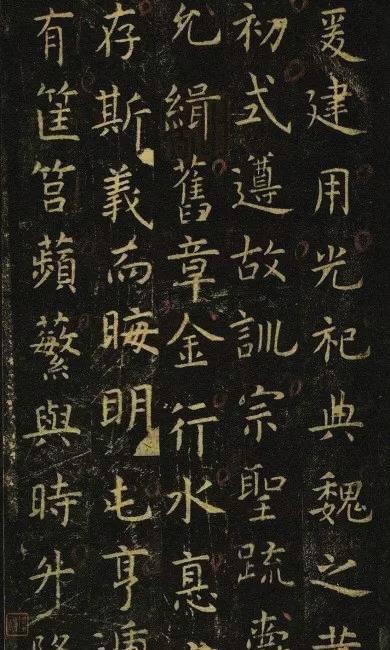 爰建用光祀典魏之黃
初式遵故訓宗聖疏
允緝舊章金行水悳
存斯義而晦明屯亨
有筐筥蘋蘩與時升